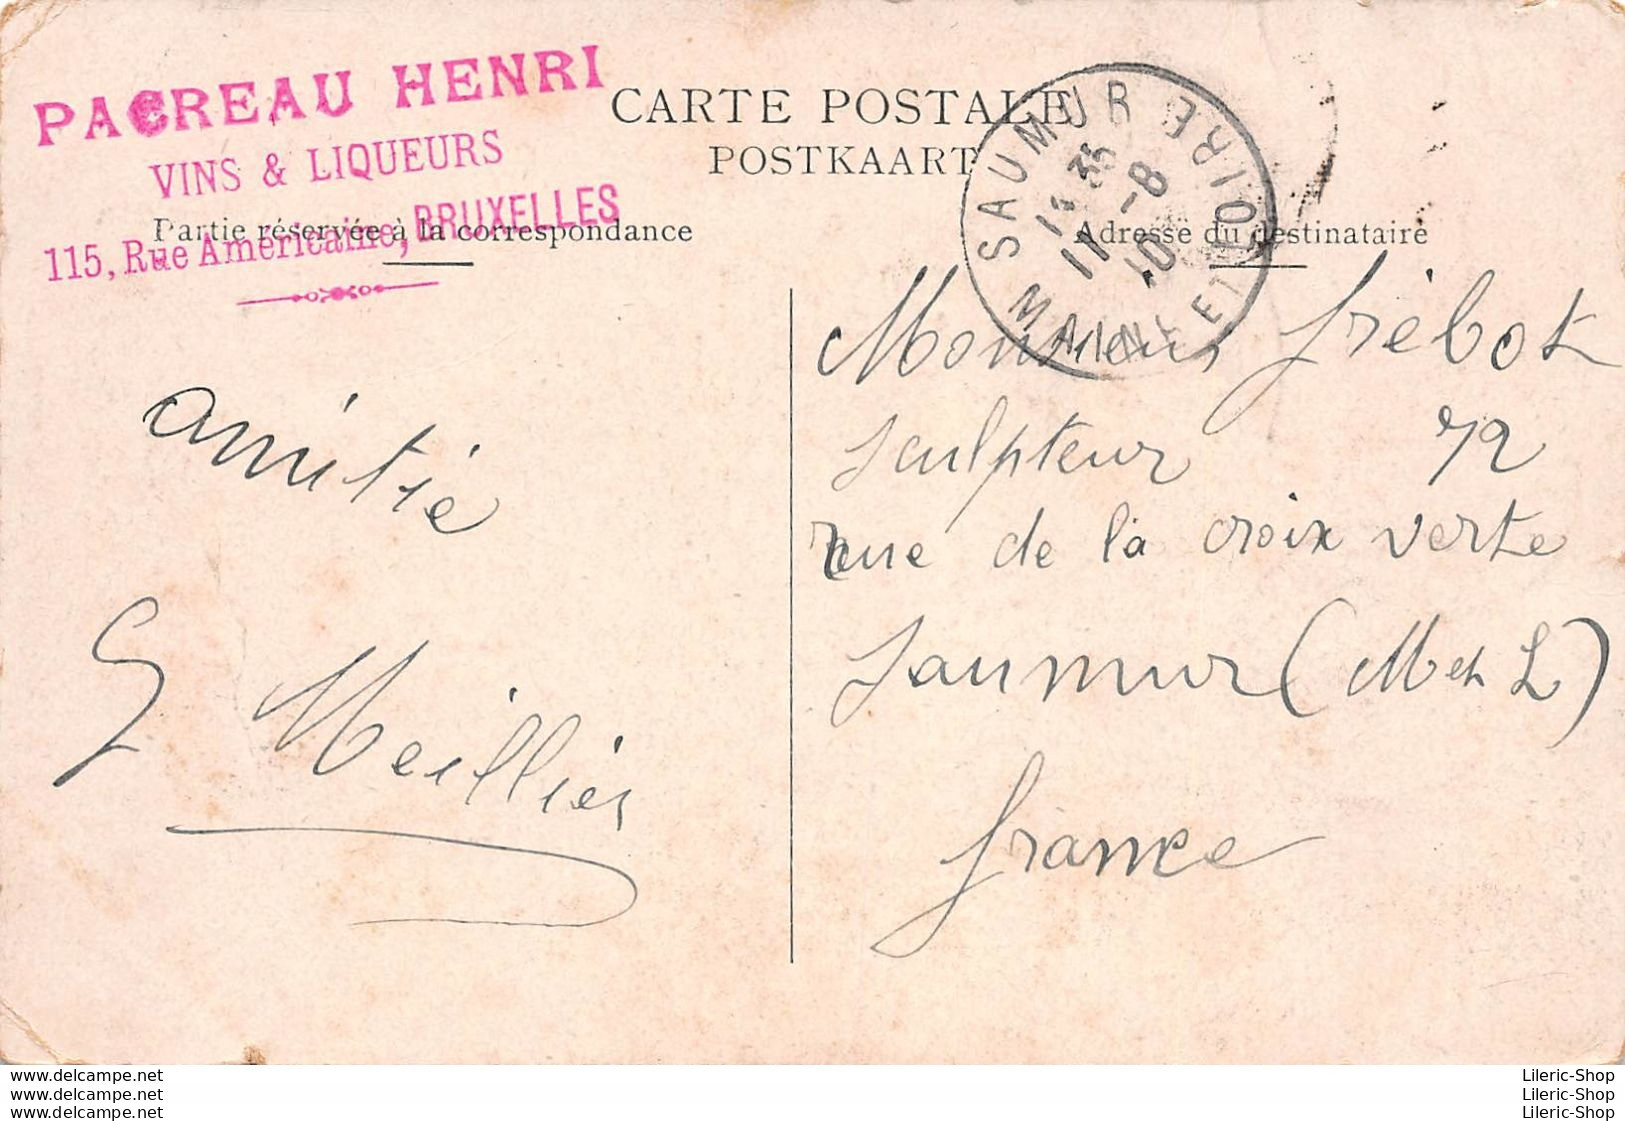 PACREAU HENRI
VINS & LIQUEURS
115, Rue Américaine, BRUXELLES
CARTE POSTALE
POSTKAART
Partie réservée à la correspondance
Adresse du destinataire
SAUMUR
MAINE ET LOIRE
11 -8
10
amitié
G Meillier
Monsieur frébot
Sculpteur 72
rue de la croix verte
Saumur (M et L)
france
www.delcampe.net
www.delcampe.net
www.delcampe.net
Lileric-Shop
Lileric-Shop
Lileric-Shop